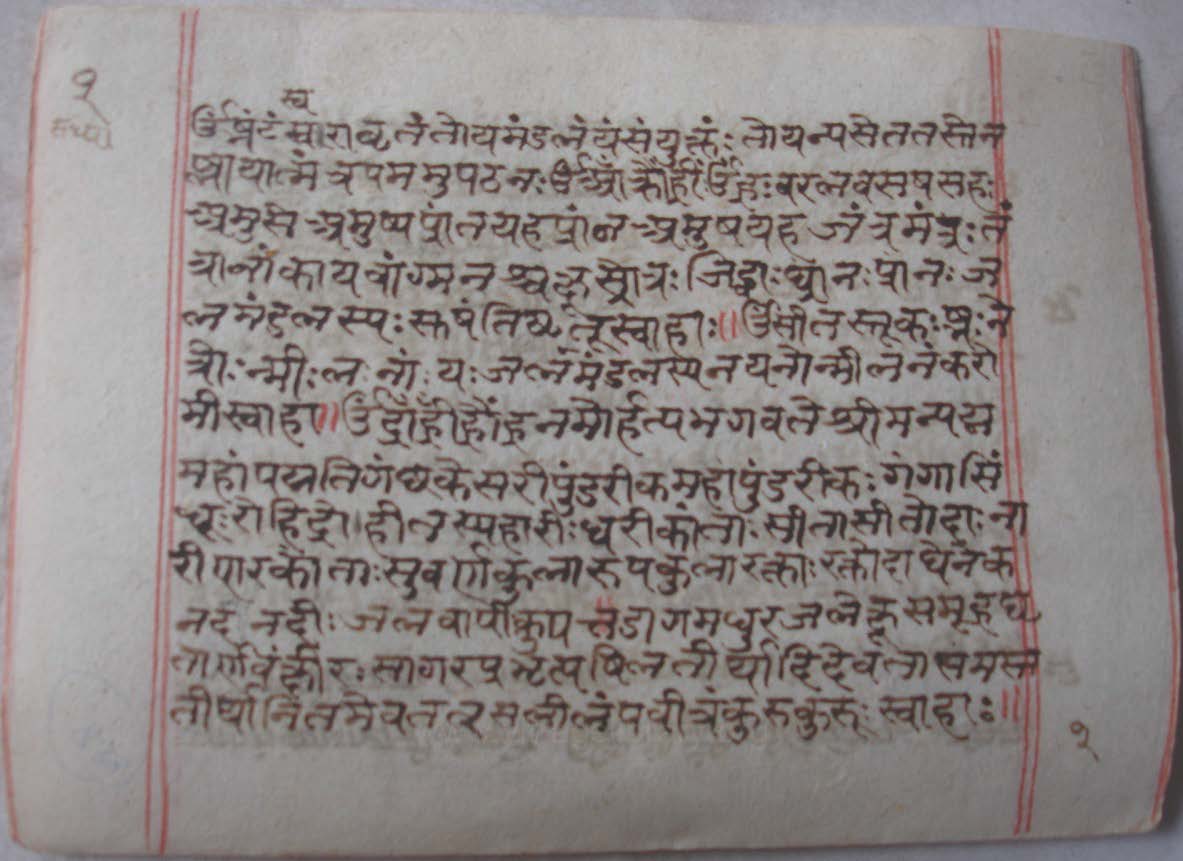 १
संध्या
स्व
ॐ ष्टं स्वारावृतं तोयमंडलं यं संयुक्तं: तोयन्यसेततस्तेन
प्रायात्मंत्रपममुपठन: ॐ आँ क्रौं ह्रीं: ॐ ह्रः वरलवसषसहः
अमुसे अमुष्यप्रांनयहप्रांन अमुषयह जंत्रमंत्र: तं
त्रानां कायवांग्मनश्चक्षुस्रोत्र: जिह्वा: घ्रांन: प्रांन: ज
लमंडलस्य: स्तपं तिष्ठंतू स्वाहा: ॥ ॐ सोतस्तूक: ष्रू: ने
त्रो: न्मी: ल: नां: य: जलमंडलस्य नयनोन्मीलनं करो
मी स्वाहा ॥ ॐ ह्राँ ह्रीं ह्रौं ह्रः नमोर्हत्पभगवते श्रीमन्पद्म
महांपद्मतिगंछकेसरीपुंडरीकमहांपुंडरीक: गंगासिं
धू: रोहिद्रोहीतस्पहारी: धरीकांता: सीतासीतोदा: ना
रीणारकांता: सुवर्णकुलारूपकुलारक्ता: रक्तोदाघेनेक
नदनदी: जलवापीकुपतडागमधुरजलेक्षुसमूहघृ
तार्णवंक्षीर: सागरप्रभृत्यषिलतीर्थादिदेवतासमस्त
तीर्थानितमेवतत्रसलीलंपवीत्रं कुरु कुरू: स्वाहा: ॥
१